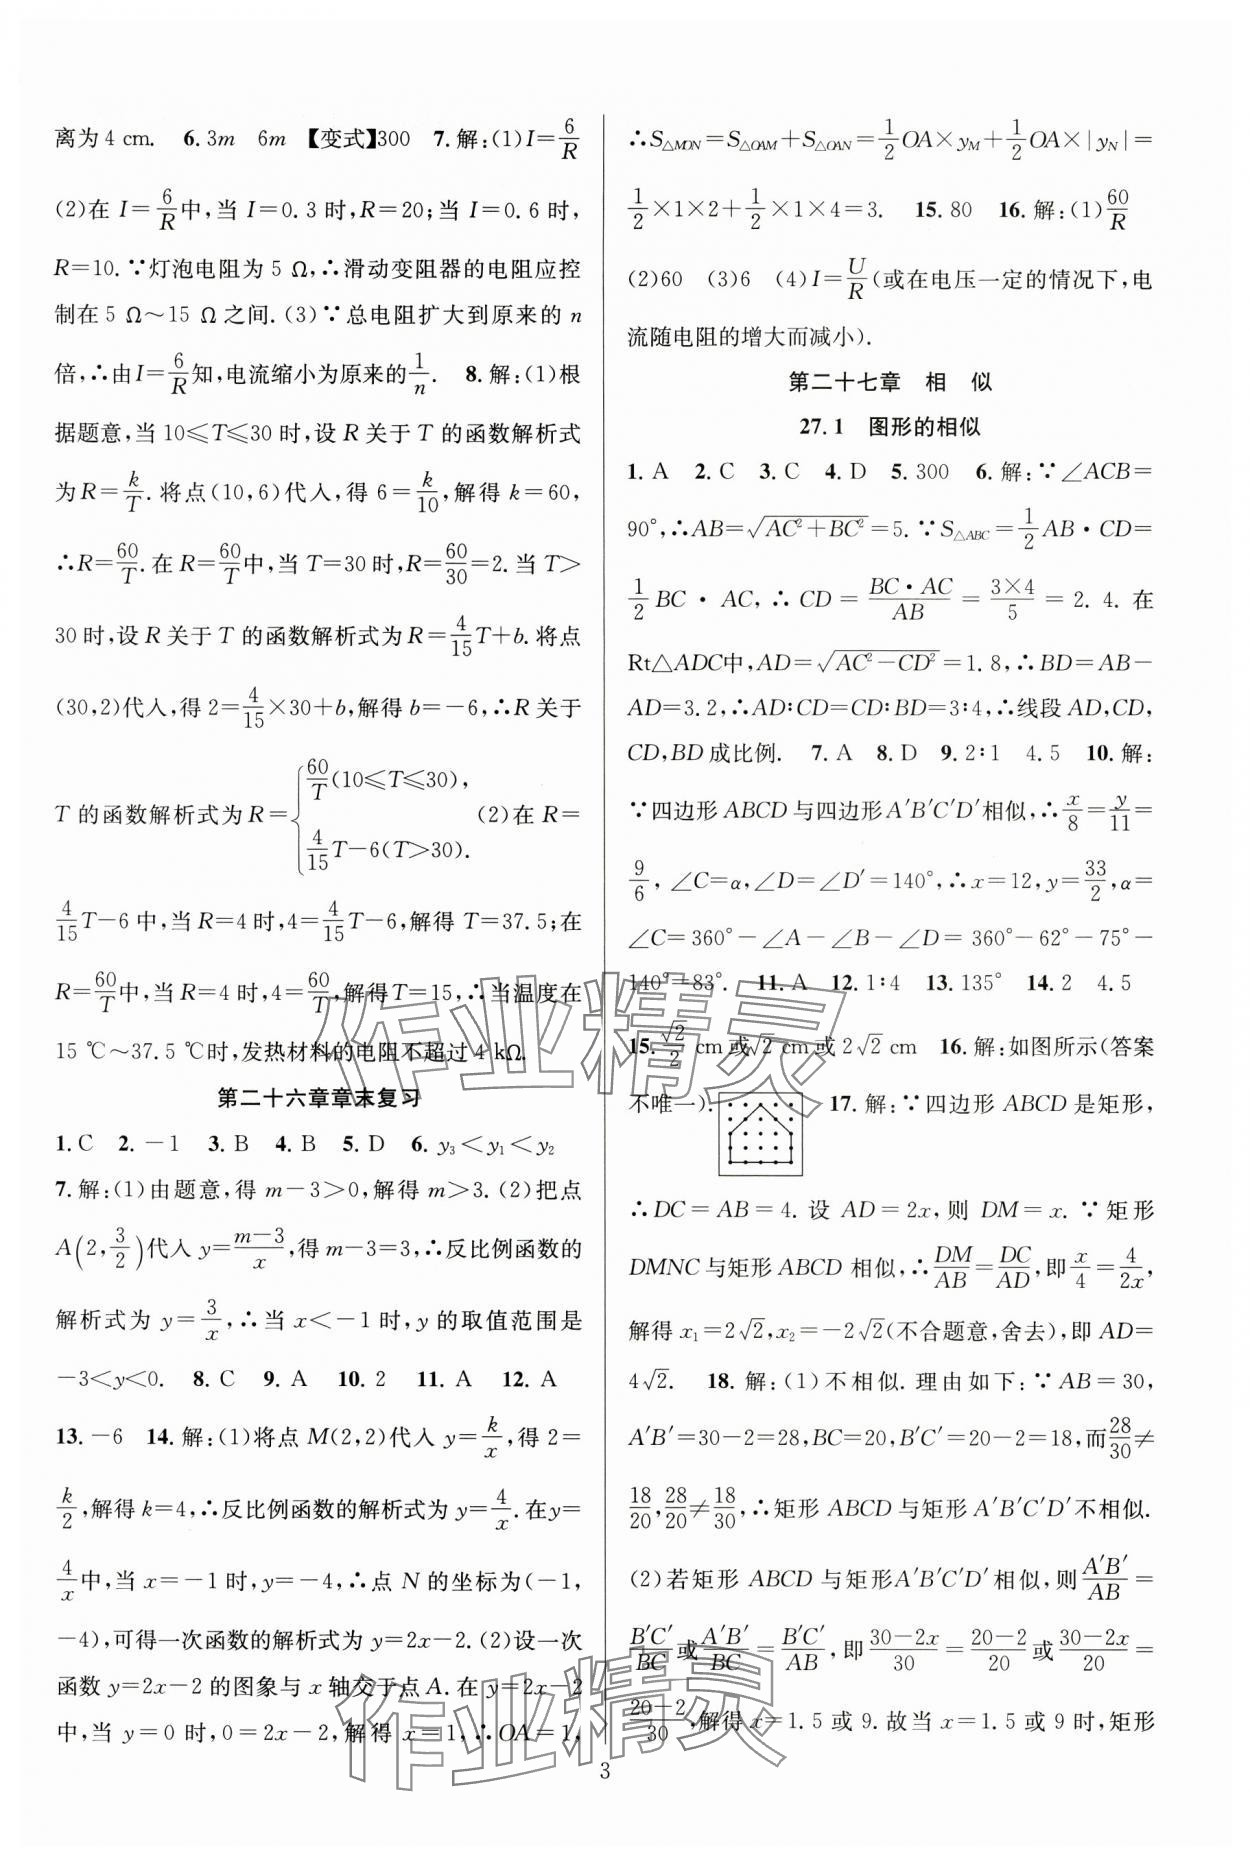 离为 4 cm.　6.3m　6m　【变式】300　7.解:(1)I=6/R
(2)在 I=6/R中,当 I=0.3 时,R=20;当 I=0.6 时,
R=10.∵灯泡电阻为 5 Ω,∴滑动变阻器的电阻应控
制在 5 Ω～15 Ω 之间.(3)∵总电阻扩大到原来的 n
倍,∴由I=6/R知,电流缩小为原来的1/n.　8.解:(1)根
据题意,当 10≤T≤30 时,设 R 关于 T 的函数解析式
为R=k/T.将点(10,6)代入,得 6=k/10,解得 k=60,
∴R=60/T.在 R=60/T中,当 T=30 时,R=60/30=2.当 T>
30 时,设 R 关于 T 的函数解析式为 R=4/15T+b.将点
(30,2)代入,得 2=4/15×30+b,解得 b=-6,∴R 关于
T 的函数解析式为 R={60/T(10≤T≤30), 4/15T-6(T>30).　(2)在 R=
4/15T-6 中,当 R=4 时,4=4/15T-6,解得 T=37.5;在
R=60/T中,当 R=4 时,4=60/T,解得T=15,∴当温度在
15 ℃～37.5 ℃时,发热材料的电阻不超过 4 kΩ.
第二十六章章末复习
1.C　2.-1　3.B　4.B　5.D　6.y₃<y₁<y₂
7.解:(1)由题意,得 m-3>0,解得 m>3.(2)把点
A(2,3/2)代入 y=m-3/x,得 m-3=3,∴反比例函数的
解析式为 y=3/x,∴当 x<-1 时,y 的取值范围是
-3<y<0.　8.C　9.A　10.2　11.A　12.A
13.-6　14.解:(1)将点 M(2,2)代入 y=k/x,得 2=
k/2,解得 k=4,∴反比例函数的解析式为 y=4/x.在y=
4/x中,当 x=-1 时,y=-4,∴点 N 的坐标为(-1,
-4),可得一次函数的解析式为 y=2x-2.(2)设一次
函数 y=2x-2 的图象与 x 轴交于点 A.在 y=2x-2
中,当 y=0 时,0=2x-2,解得 x=1,∴OA=1,
∴S△MON=S△OAM+S△OAN=1/2OA×yM+1/2OA×|yN|=
1/2×1×2+1/2×1×4=3.　15.80　16.解:(1)60/R
(2)60　(3)6　(4)I=U/R(或在电压一定的情况下,电
流随电阻的增大而减小).
第二十七章　相　似
27.1　图形的相似
1.A　2.C　3.C　4.D　5.300　6.解:∵∠ACB=
90°,∴AB=√(AC²+BC²)=5.∵S△ABC=1/2AB·CD=
1/2BC·AC,∴CD=BC·AC/AB=3×4/5=2.4.在
Rt△ADC中,AD=√(AC²-CD²)=1.8,∴BD=AB-
AD=3.2,∴AD:CD=CD:BD=3:4,∴线段 AD,CD,
CD,BD 成比例.　7.A　8.D　9.2:1　4.5　10.解:
∵四边形 ABCD 与四边形 A′B′C′D′相似,∴x/8=y/11=
9/6,∠C=α,∠D=∠D′=140°,∴x=12,y=33/2,α=
∠C=360°-∠A-∠B-∠D=360°-62°-75°-
140°=83°.　11.A　12.1:4　13.135°　14.2　4.5
15.√2/2 cm或√2 cm或2√2 cm　16.解:如图所示(答案
不唯一).　17.解:∵四边形 ABCD 是矩形,
∴DC=AB=4.设 AD=2x,则 DM=x.∵矩形
DMNC 与矩形 ABCD 相似,∴DM/AB=DC/AD,即x/4=4/2x,
解得 x₁=2√2,x₂=-2√2(不合题意,舍去),即 AD=
4√2.　18.解:(1)不相似.理由如下:∵AB=30,
A′B′=30-2=28,BC=20,B′C′=20-2=18,而28/30≠
18/20,28/20≠18/30,∴矩形 ABCD 与矩形 A′B′C′D′不相似.
(2)若矩形 ABCD 与矩形A′B′C′D′相似,则A′B′/AB=
B′C′/BC或A′B′/BC=B′C′/AB,即30-2x/30=20-2/20或30-2x/20=
20-2/30,解得 x=1.5 或 9.故当 x=1.5 或 9 时,矩形
3
作业精灵
作业精灵